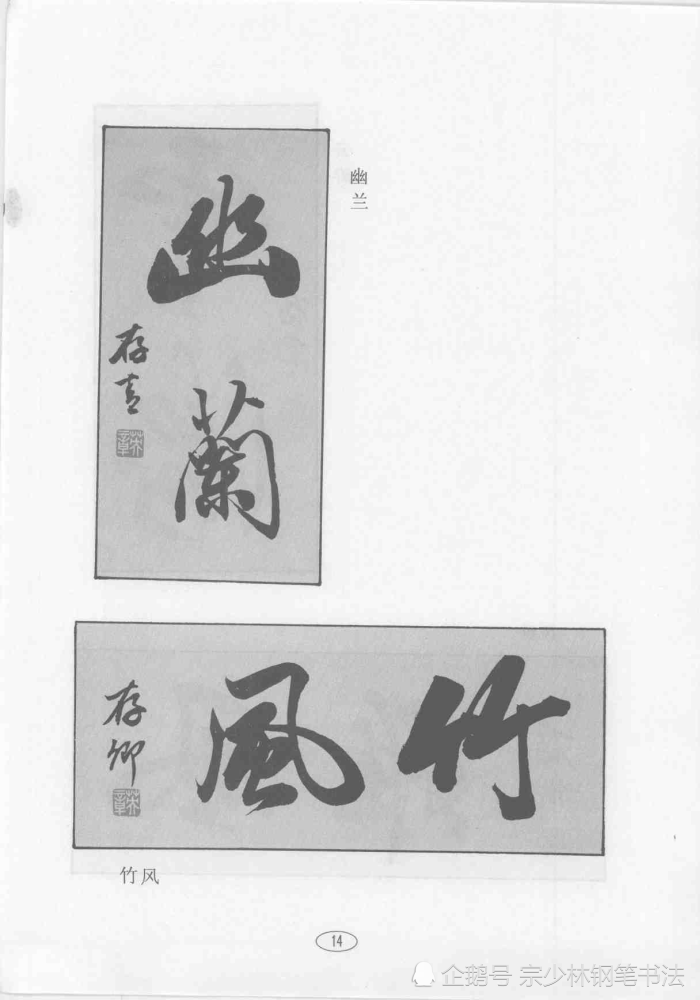 幽蘭
存青
幽兰
竹風
存卿
竹风
14
企鹅号 宗少林钢笔书法